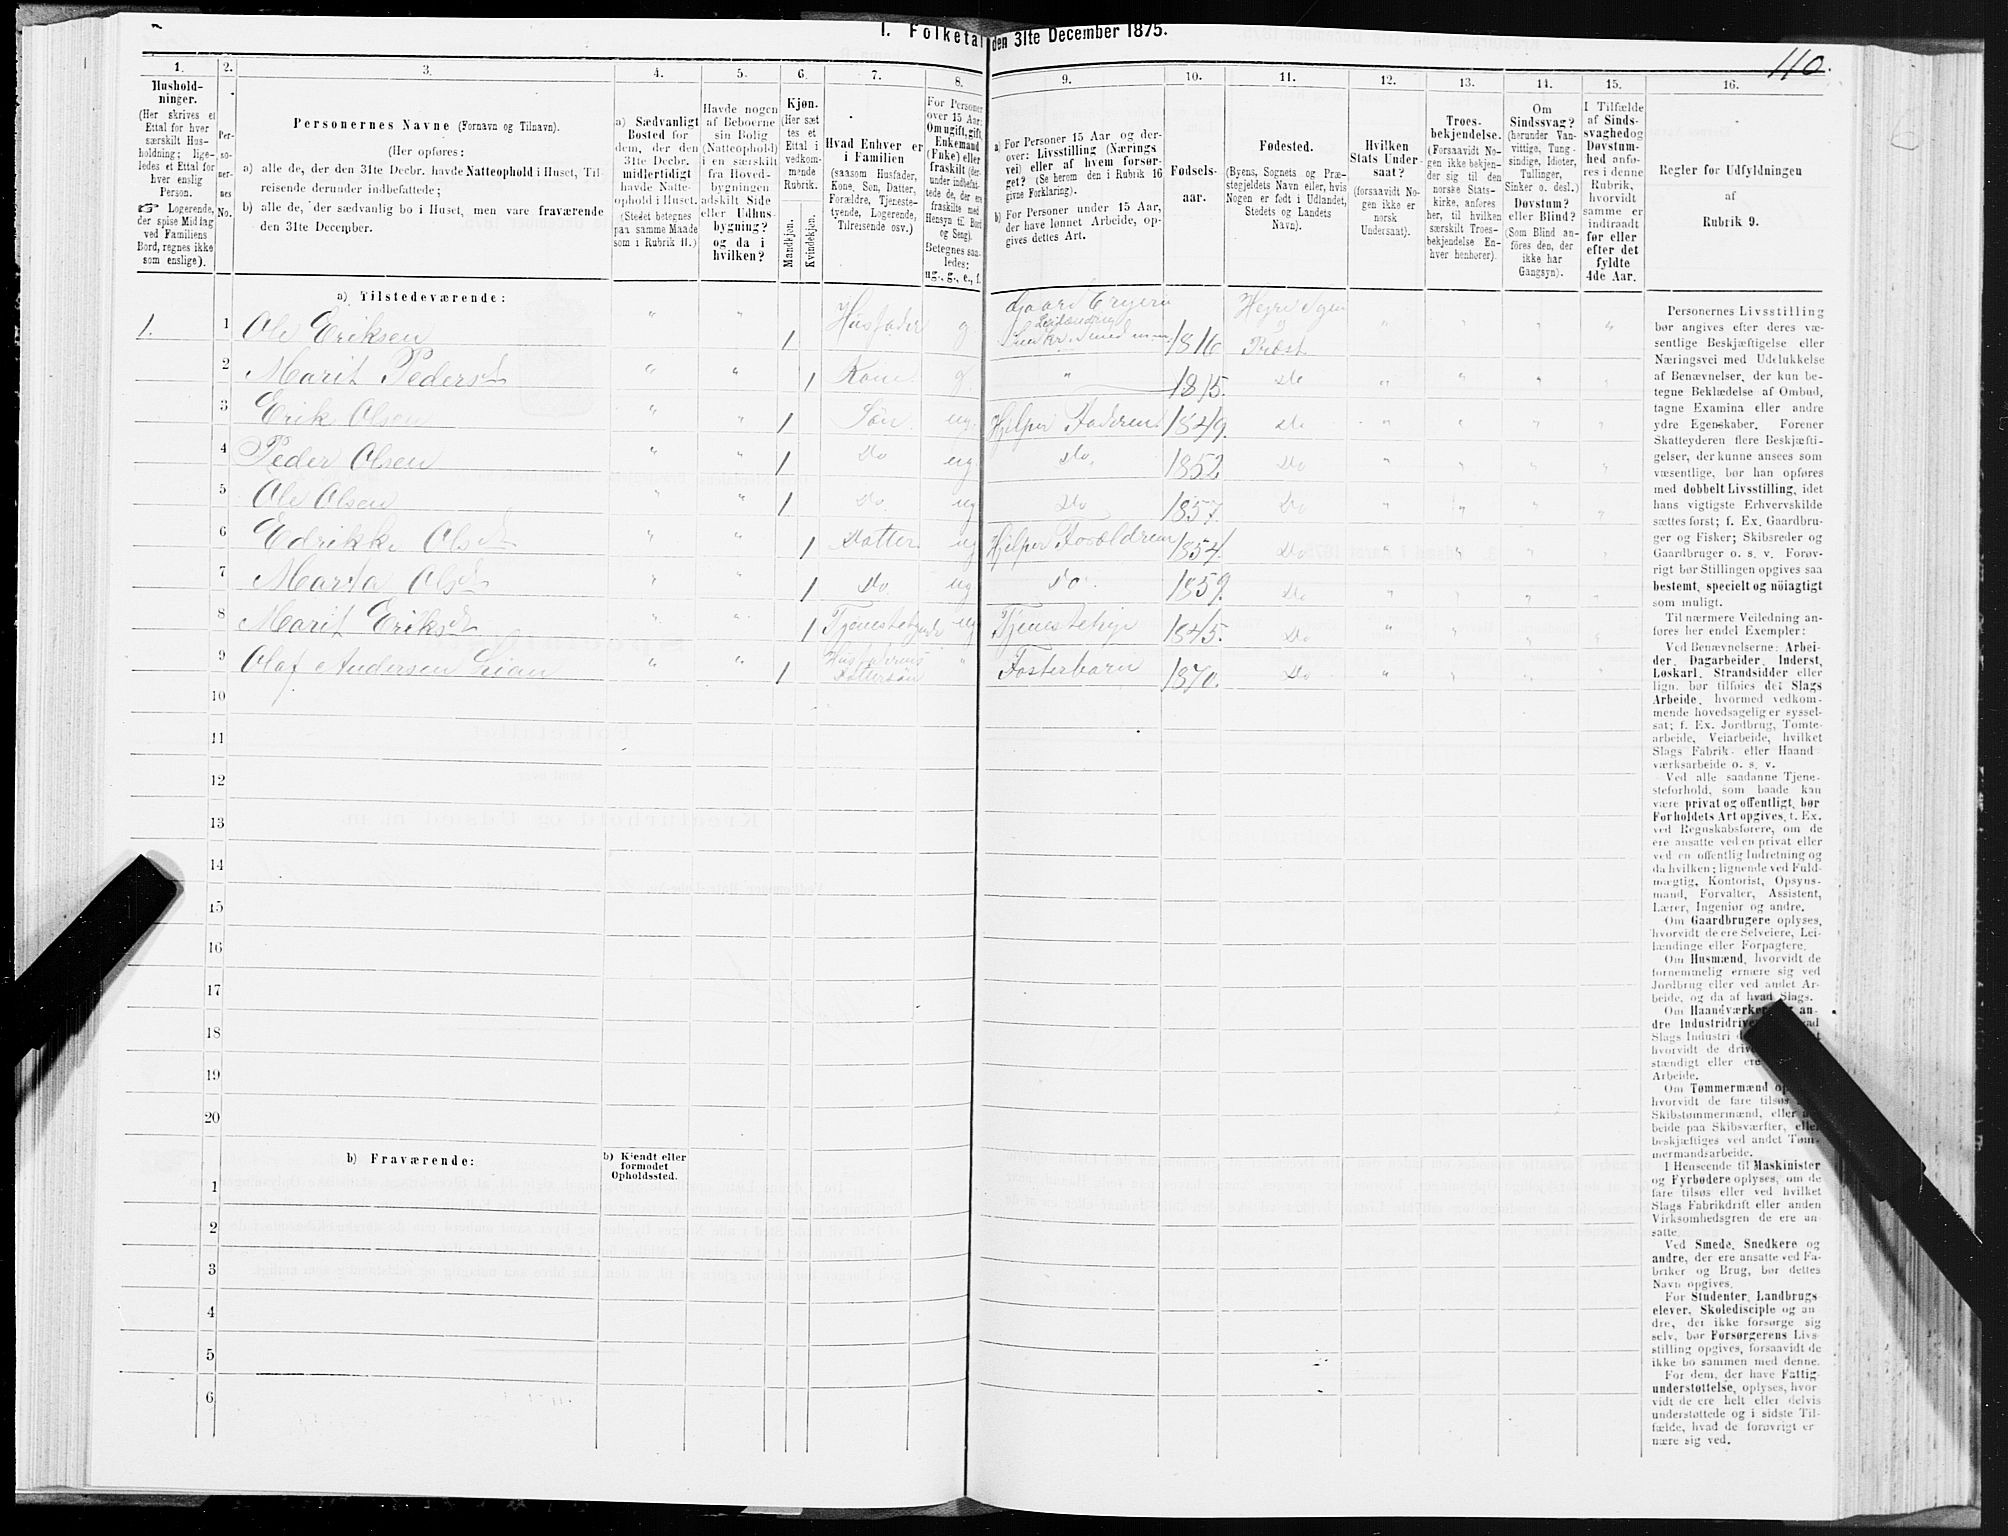 I. Folketal den 31te December 1875.
110.
1.
2.
3.
4.
5.
6.
7.
8.
9.
10.
11.
12.
13.
14.
15.
16.
Husholdninger.
(Her skrives et Ettal for hver særskilt Husholdning; ligeledes et Ettal for hver enslig Person.
☞ Logerende, der spise Middag ved Familiens Bord, regnes ikke som enslige).
Personernes No.
Personernes Navne (Fornavn og Tilnavn).
(Her opføres:
a) alle de, der den 31te Decbr. havde Natteophold i Huset, Tilreisende derunder indbefattede;
b) alle de, der sædvanlig bo i Huset, men vare fraværende den 31te December.
a) Sædvanligt Bosted for dem, der den 31te Decbr. midlertidigt havde Natteophold i Huset. (Stedet betegnes paa samme Maade som i Rubrik 11.)
Havde nogen af Beboerne sin Bolig (Natteophold) i en særskilt fra Hovedbygningen adskilt Side eller Udhusbygning? og da i hvilken?
Kjøn.
(Her sættes et Ettal i vedkommende Rubrik.
Mandkjøn.
Kvindekjøn.
Hvad Enhver er i Familien
(saasom Husfader, Kone, Søn, Datter, Forældre, Tjenestetyende, Logerende, Tilreisende osv.)
For Personer over 15 Aar: Om ugift, gift, Enkemand (Enke) eller fraskilt (derunder indbefattede de, der ere fraskilte med Hensyn til Bord og Seng). Betegnes saaledes: ug., g., e., f.
a) For Personer 15 Aar og derover: Livsstilling (Næringsvei) eller af hvem forsørget? (Se herom den i Rubrik 16 givne Forklaring).
b) For Personer under 15 Aar, der have lønnet Arbeide, opgives dettes Art.
Fødselsaar.
Fødested.
(Byens, Sognets og Præstegjeldets Navn eller, hvis Nogen er født i Udlandet, Stedets og Landets Navn).
Hvilken Stats Undersaat?
(forsaavidt Nogen ikke er norsk Undersaat).
Troesbekjendelse.
(Forsaavidt Nogen ikke bekjender sig til den norske Statskirke, anføres her, til hvilken særskilt Troesbekjendelse Enhver henhører).
Om Sindssvag? (herunder Vanvittige, Tungsindige, Idioter, Tullinger, Sinker o. desl.) Døvstum? eller Blind? (Som Blind anføres den, der ikke har Gangsyn).
I Tilfælde af Sindssvaghed og Døvstumhed anføres i denne Rubrik, hvorvidt samme er indtraadt før eller efter det fyldte 4de Aar.
Regler for Udfyldningen
af
Rubrik 9.
a) Tilstedeværende:
1. 1 Ole Eriksen " " 1 Husfader g Gaard Leilænding 1816 Hegre Sogn
2 Marit Pedersd " " 1 Kone g " 1815. Do " " " "
3 Erik Olsen " " 1 Søn ug. Hjelper Faderen 1849. Do " " " "
4 Peder Olsen " " 1 Do ug Do 1852 Do " " " "
5 Ole Olsen " " 1 Do. ug Do 1857. Do " " " "
6 Edrikke Olsd " " 1 Datter ug Hjelper Forældrene 1854. Do " " " "
7 Marta Olsd " " 1 Do. ug Do. 1859. Do " " " "
8 Marit Eriksd " " 1 Tjenestetyende ug Tjenestetyge 1845. Do " " " "
9 Olaf Andersen Lian " " 1 Husfaderens Fostersøn " Fosterbarn 1870. Do " " " "
10
11
12
13
14
15
16
17
18
19
20
b) Fraværende:
b) Kjendt eller formodet Opholdssted.
1
2
3
4
5
6
Personernes Livsstilling
bør angives efter deres væ-
sentlige Beskjæftigelse eller
Næringsvei med Udelukkelse
af Benævnelser, der kun be-
tegne Beklædelse af Ombud,
tagne Examina eller andre
ydre Egenskaber. Forener
Skatteyderen flere Beskjæfti-
gelser, der kunne ansees som
væsentlige, bør han opføres
med dobbelt Livsstilling, idet
hans vigtigste Erhvervskilde
sættes først; f. Ex. Gaardbru-
ger og Fisker; Skibsreder og
Gaardbruger o. s. v. Forøv-
rigt bør Stillingen opgives saa
bestemt, specielt og nöiagtigt
som muligt.
Til nærmere Veiledning an-
føres her endel Exempler:
Ved Benævnelserne: Arbei-
der, Dagarbeider, Inderst,
Løskarl, Strandsidder eller
lign. bør tilføies det Slags
Arbeide, hvormed vedkom-
mende hovedsagelig er syssel-
sat; f. Ex. Jordbrug, Tomte-
arbeide, Veiarbeide, hvilket
Slags Fabrik- eller Haand-
værksarbeide o. s. v.
Ved alle saadanne Tjene-
steforhold, som baade kan
være privat og offentligt, bør
Forholdets Art opgives, f. Ex.
ved Regnskabsførere, om de
ere ansatte ved en privat eller
ved en offentlig Indretning og
da hvilken; lignende ved Fuld-
mægtig, Kontorist, Opsyns-
mand, Forvalter, Assistent,
Lærer, Ingeniør og andre.
Om Gaardbrugere oplyses,
hvorvidt de ere Selveiere, Lei-
lændinge eller Forpagtere.
Om Husmænd, hvorvidt de
fornemmelig ernære sig ved
Jordbrug eller ved andet Ar-
beide, og da af hvad Slags.
Om Haandværkere og an-
dre Industridrivende
Slags Industri
hvorvidt de
stændigt eller ere
Arbeide.
Om Tømmermænd
hvorvidt de fare tilsøs
Skibstømmermænd, eller
beide paa Skibsværfter, eller
beskjæftiges ved andet Tøm-
mermandsarbeide.
I Henseende til Maskinister
og Fyrbødere oplyses, om de
fare tilsøs eller ved hvilket
Slags Fabrikdrift eller anden
Virksomhedsgren de ere an-
satte.
Ved Smede, Snedkere og
andre, der ere ansatte ved Fa-
briker og Brug, bør dettes
Navn opgives.
For Studenter, Landbrugs-
elever, Skoledisciple og an-
dre, der ikke forsørge sig
selv, bør Forsørgerens Livs-
stilling opgives, forsaavidt de
ikke bo sammen med denne.
For dem, der have Fattig-
understøttelse, oplyses, hvor-
vidt de ere helt eller delvis
understøttede og i sidste Til-
fælde, hvad de forøvrigt er-
nære sig ved.